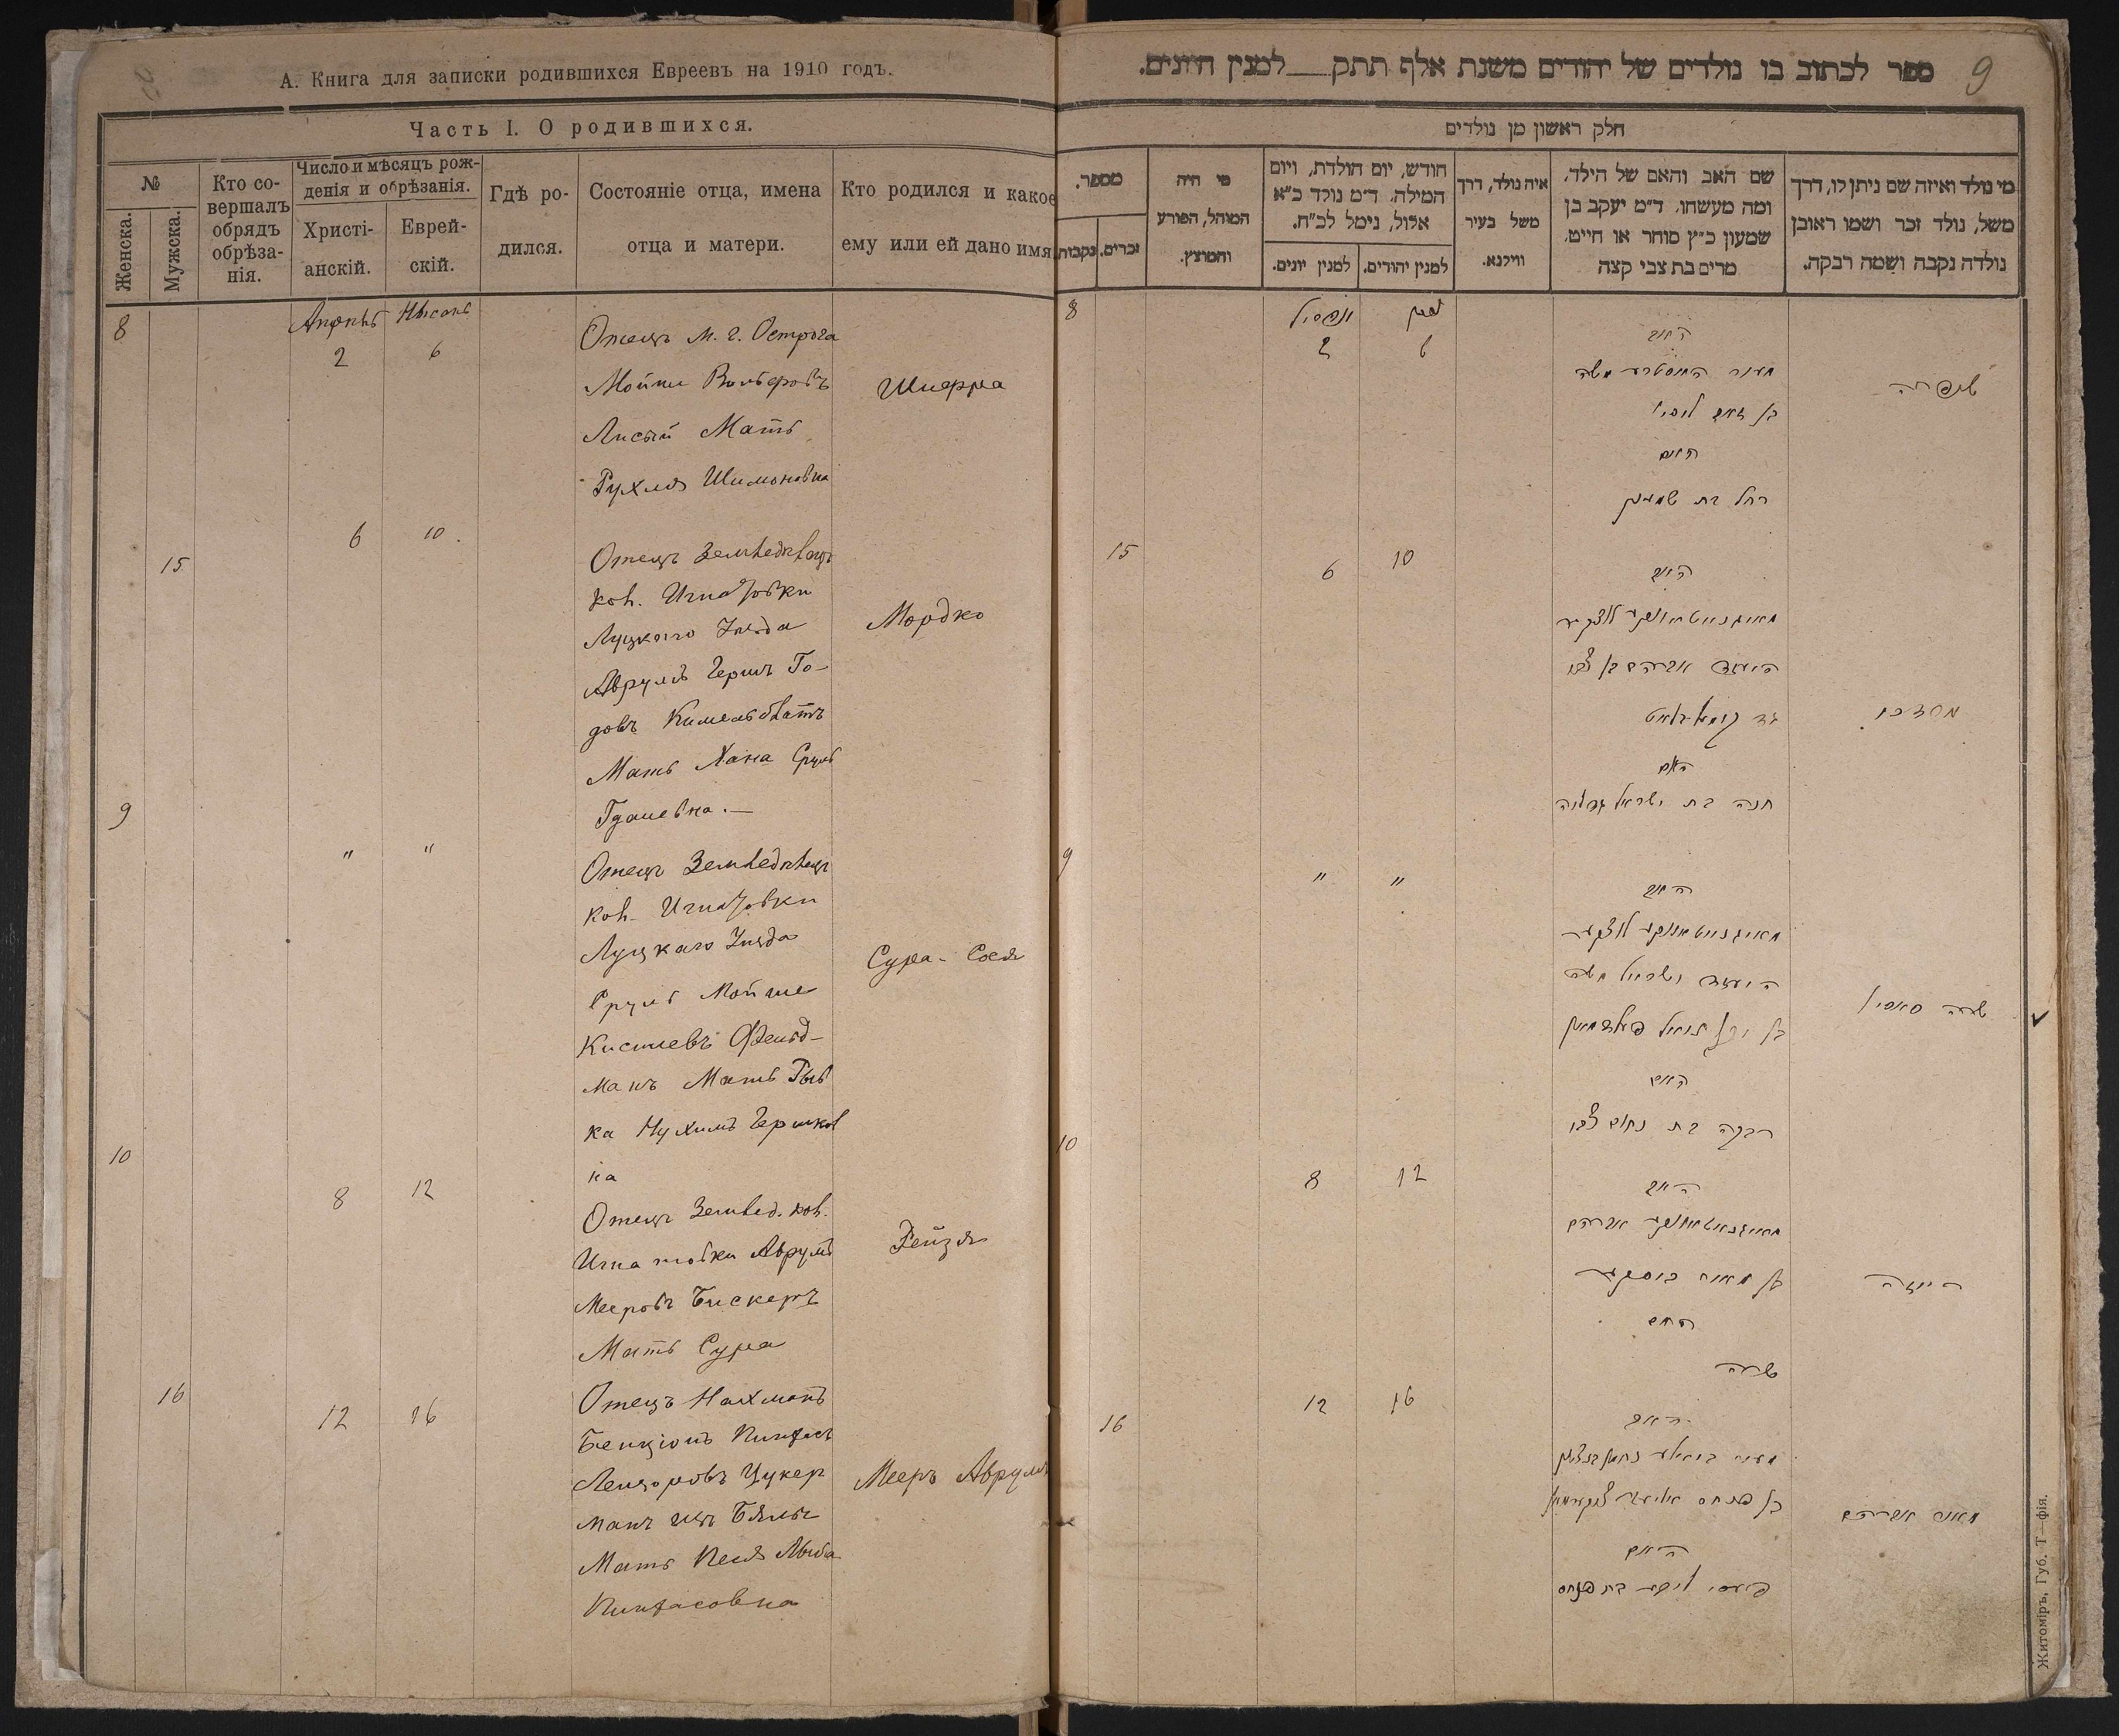 А. Книга для записки родившихся Евреевъ на 1910 годъ.
Часть I. О родившихся.
№
Женска.
Мужска.
Кто со-
вершалъ
обрядъ
обрѣза-
нія.
Число и мѣсяцъ рож-
денія и обрѣзанія.
Христі-
анскій.
Еврей-
скій.
Гдѣ ро-
дился.
Состояніе отца, имена
отца и матери.
Кто родился и какое
ему или ей дано имя
8
Апрель Нисонъ
2 6
Отецъ м. г. Острога
Мойше Вольфовъ
Лисый Мать
Рухля Шимоновна
Шифра
15
6 10
Отецъ Земледѣлецъ
кол. Игнатовки
Луцкого Уезда
Аврумъ Гершъ Го-
довъ Кимельблатъ
Мать Хана Сруль
Гдалевна.—
Мордко
9
" "
Отецъ Земледѣлецъ
кол. Игнатовки
Луцкаго Уезда
Сруль Мойше
Фельд-
манъ Мать Рыв
ка Нухимъ Гершков
на
Сура-Сося
10
8 12
Отецъ Землед. кол.
Игнатовки Аврумъ
Мееровъ Бискеръ
Мать Сура
Рейзя
16
12 16
Отецъ Нахманъ
Бенціонъ Пинхас
Лейзоровъ Цукер
манъ изъ
Мать Песя
Пинхасовна
Мееръ Аврумъ
ספר לכתוב בו נולדים של יהודים משנת אלף תתק__למנין היונים.
9
חלק ראשון מן נולדים
מספר.
זכרים.
נקבות
מי היה
המוהל, הפורע
והמוצץ.
חודש, יום הולדת, ויום
המילה. ד״מ נולד כ״א
אלול, נימל לכ״ח.
למנין יונים.
למנין יהודים.
איה נולד, דרך
משל בעיר
ווילנא.
שם האב והאם של הילד,
ומה מעשהו. ד״מ יעקב בן
שמעון כ״ץ סוחר או חייט,
מרים בת צבי קצה
מי נולד ואיזה שם ניתן לו, דרך
משל, נולד זכר ושמו ראובן
נולדה נקבה ושמה רבקה.
8
אפריל ניסן
2 6
האב
משה
בן
האם
רחל בת שמעון
שפרה
15
6 10
האב
אברהם בן צבי
גד קימעלבלאט
האם
חנה בת ישראל גדליה
מרדכי
9
" "
האב
ישראל משה
פעלדמאן
האם
רבקה בת נחום צבי
שרה סאסיל
10
8 12
האב
אברהם
בן מאיר ביסקער
האם
שרה
רייזה
16
12 16
האב
נחמן בנציון
בן פנחס אליעזר צוקערמאן
האם
בת פנחס
מאיר אברהם
Житоміръ, Губ. Т—фія.